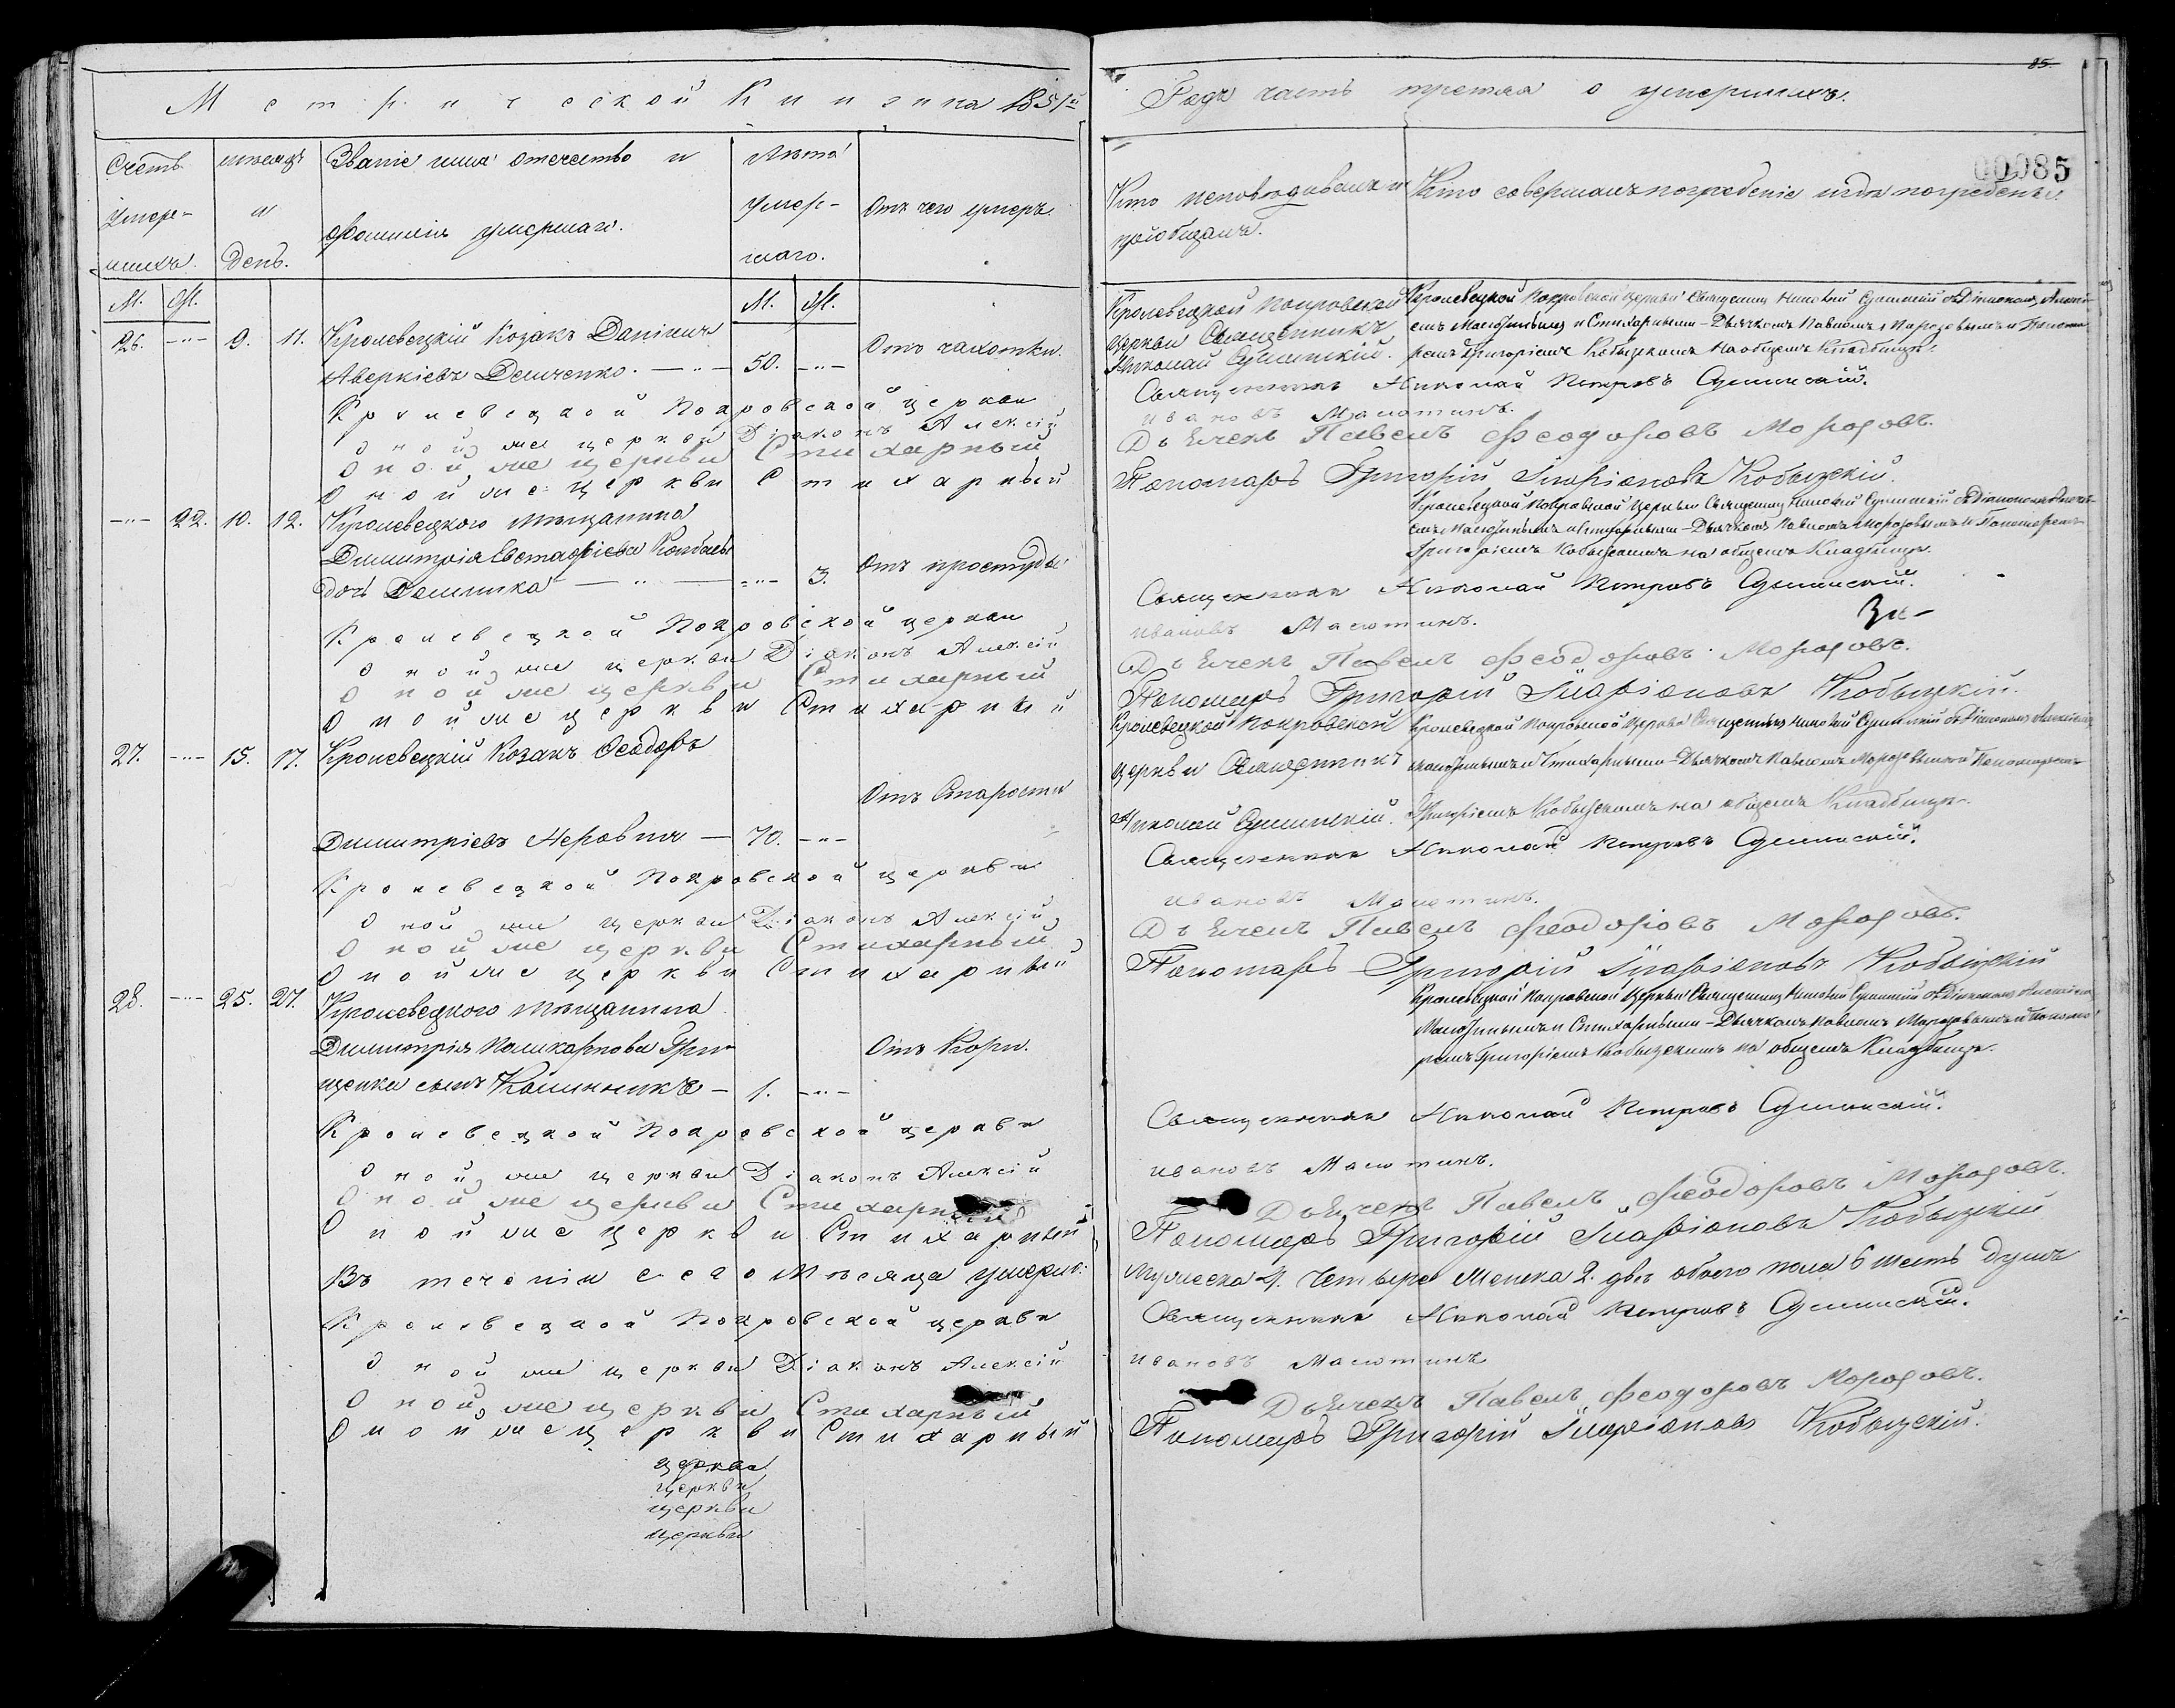 Метрической Книги на 1851й
Счетъ
умер-
шихъ.
мѣсяцъ
и
день.
Званіе имя отечество и
фамилія умершаго.
Лѣта
умер-
шаго.
Отъ чего умеръ.
М. Ж. М. Ж.
26. -〃- 9. 11. Кролевецкій Козакъ Даніилъ
Аверкіевъ Демченко. -〃- 50. -〃- Отъ чахотки.
Кролевецкой Покровской церкви
оной же церкви Діаконъ Алексій
Оной же церкви Стихарный
Оной же церкви Стихарный
-〃- 22. 10. 12. Кролевецкого мѣщанина
Димитрія Евстафіева
дочь -〃- -〃- 3. Отъ простуды
Кролевецкой Покровской церкви
оной же церкви Діаконъ Алексій
Оной же церкви Стихарный
Оной же церкви Стихарный
27. -〃- 15. 17. Кролевецкій Козакъ Феодоръ
Отъ Старости
Димитріевъ — 70. -〃-
Кролевецкой Покровской церкви
Оной же церкви Діаконъ Алексій
Оной же церкви Стихарный
Оной же церкви Стихарный
28. -〃- 25. 27. Кролевецкого мѣщанина
Димитрія Поликарпова Гри-
щенка сынъ — 1. -〃- Отъ Кори.
Кролевецкой Покровской церкви
Оной же церкви Діаконъ Алексій
Оной же церкви Стихарный
Оной же церкви Стихарный
Въ теченіи сего Мѣсяца умерло:
Кролевецкой Покровской церкви
Оной же церкви Діаконъ Алексій
Оной же церкви Стихарный
Оной же церкви Стихарный
церкви
церкви
церкви
церкви
85.
часть третяя о умершихъ.
00085
Кто исповѣдивалъ и
пріобщалъ.
Кто совершалъ погребеніе и гдѣ погребены.
Кролевецкой Покровской
церкви Священникъ
Николай Сушинскій.
Кролевецкой Покровской церкви Священникъ Николай Сушинскій съ Діакономъ Алексі-
емъ и Стихарными - Дьячкомъ Павломъ Морозовымъ и Понома-
ремъ Григоріемъ Кобыщкимъ на общемъ Кладбищѣ.
Священникъ Николай Петровъ Сушинскій.
Ивановъ Малютинъ.
Дьячекъ Павелъ Феодоровъ Морозовъ.
Пономарь Григорій Иларіоновъ Кобыщкій.
Кролевецкой Покровской церкви Священникъ Николай Сушинскій съ Діакономъ Алексі-
емъ и Стихарными - Дьячкомъ Павломъ Морозовымъ и Пономаремъ
Григоріемъ Кобыщкимъ на общемъ Кладбищѣ.
Священникъ Николай Петровъ Сушинскій.
Ивановъ Малютинъ.
Дьячекъ Павелъ Феодоровъ Морозовъ.
Пономарь Григорій Иларіоновъ Кобыщкій.
Кролевецкой Покровской
церкви Священникъ
Николай Сушинскій.
Кролевецкой Покровской Церкви Священникъ Николай Сушинскій съ Діакономъ Алексіемъ
и Стихарными - Дьячкомъ Павломъ Морозовымъ и Пономаремъ
Григоріемъ Кобыщкимъ на общемъ Кладбищѣ.
Священникъ Николай Петровъ Сушинскій.
Ивановъ Малютинъ.
Дьячекъ Павелъ Феодоровъ Морозовъ.
Пономарь Григорій Иларіоновъ Кобыщкій
Кролевецкой Покровской Церкви Священникъ Николай Сушинскій съ Діакономъ Алексіемъ
и Стихарными - Дьячкомъ Павломъ Морозовымъ и Понома-
ремъ Григоріемъ Кобыщкимъ на общемъ Кладбищѣ.
Священникъ Николай Петровъ Сушинскій.
Ивановъ Малютинъ.
Дьячекъ Павелъ Феодоровъ Морозовъ.
Пономарь Григорій Иларіоновъ Кобыщкій
Мужеска 4. Четыре Женска 2. двѣ обоего пола 6 шесть душъ
Священникъ Николай Петровъ Сушинскій.
Ивановъ Малютинъ
Дьячекъ Павелъ Феодоровъ Морозовъ.
Пономарь Григорій Иларіоновъ Кобыщкій.